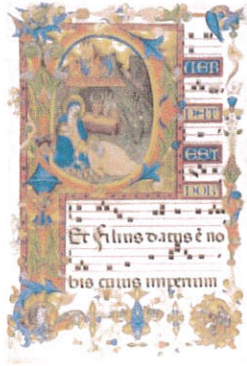 UER
NAT
EST
NOB
Et filius datus ē no
bis cuius imperium